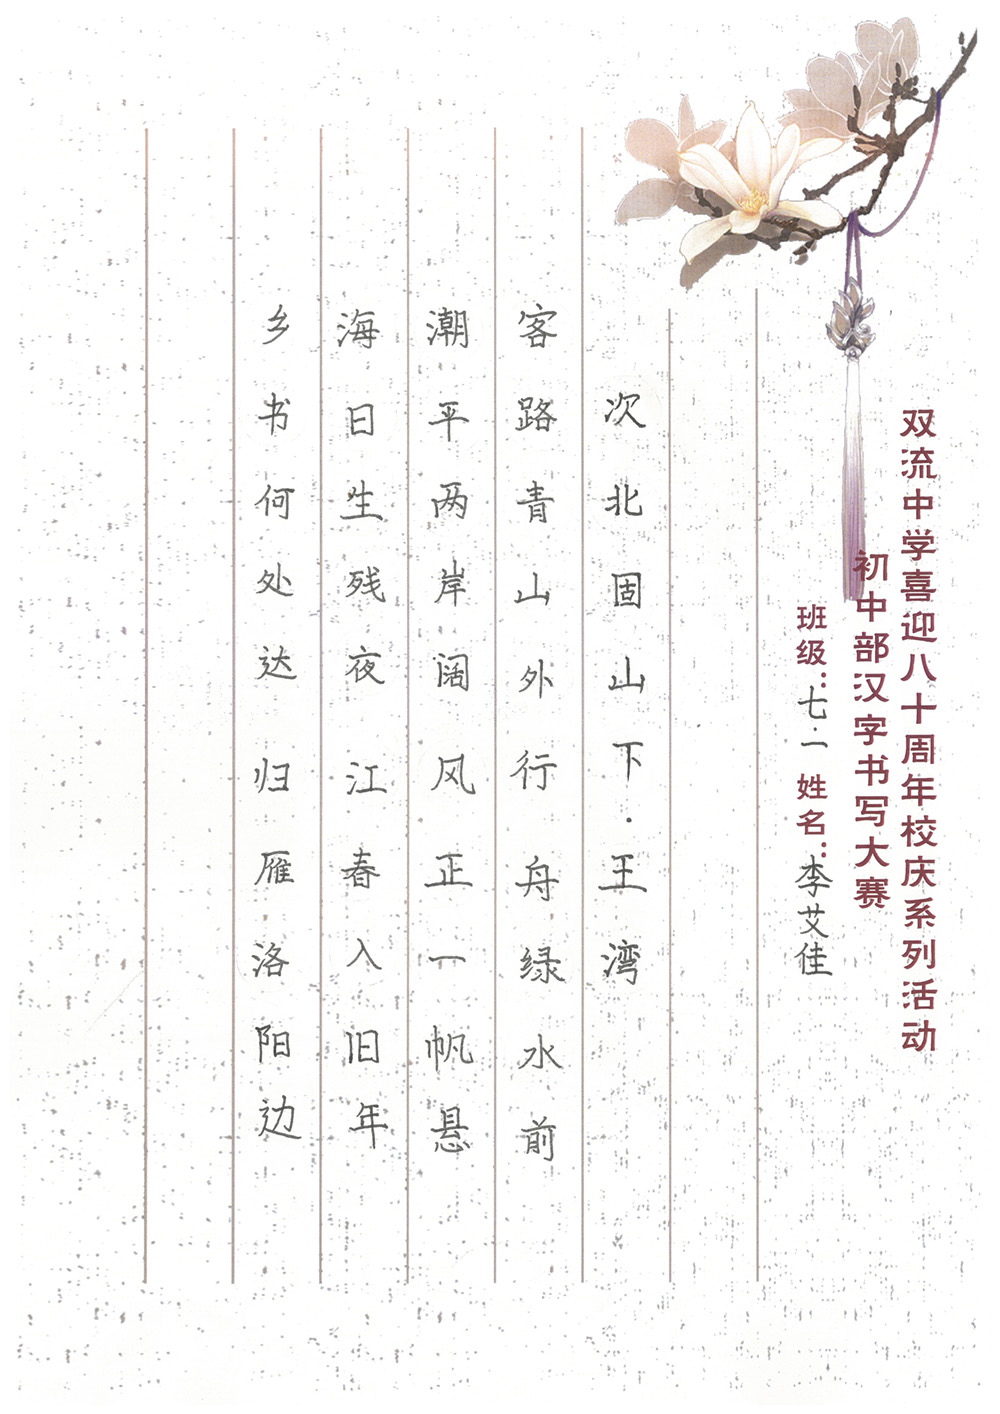 双流中学喜迎八十周年校庆系列活动
初中部汉字书写大赛
班级：七.一 姓名：李艾佳
次北固山下·王湾
客路青山外行舟绿水前
潮平两岸阔风正一帆悬
海日生残夜江春入旧年
乡书何处达归雁洛阳边